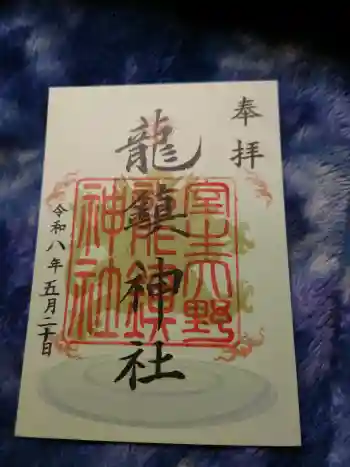 奉拝
龍鎮神社
室生野
龍鎮
神社
令和八年五月二十日